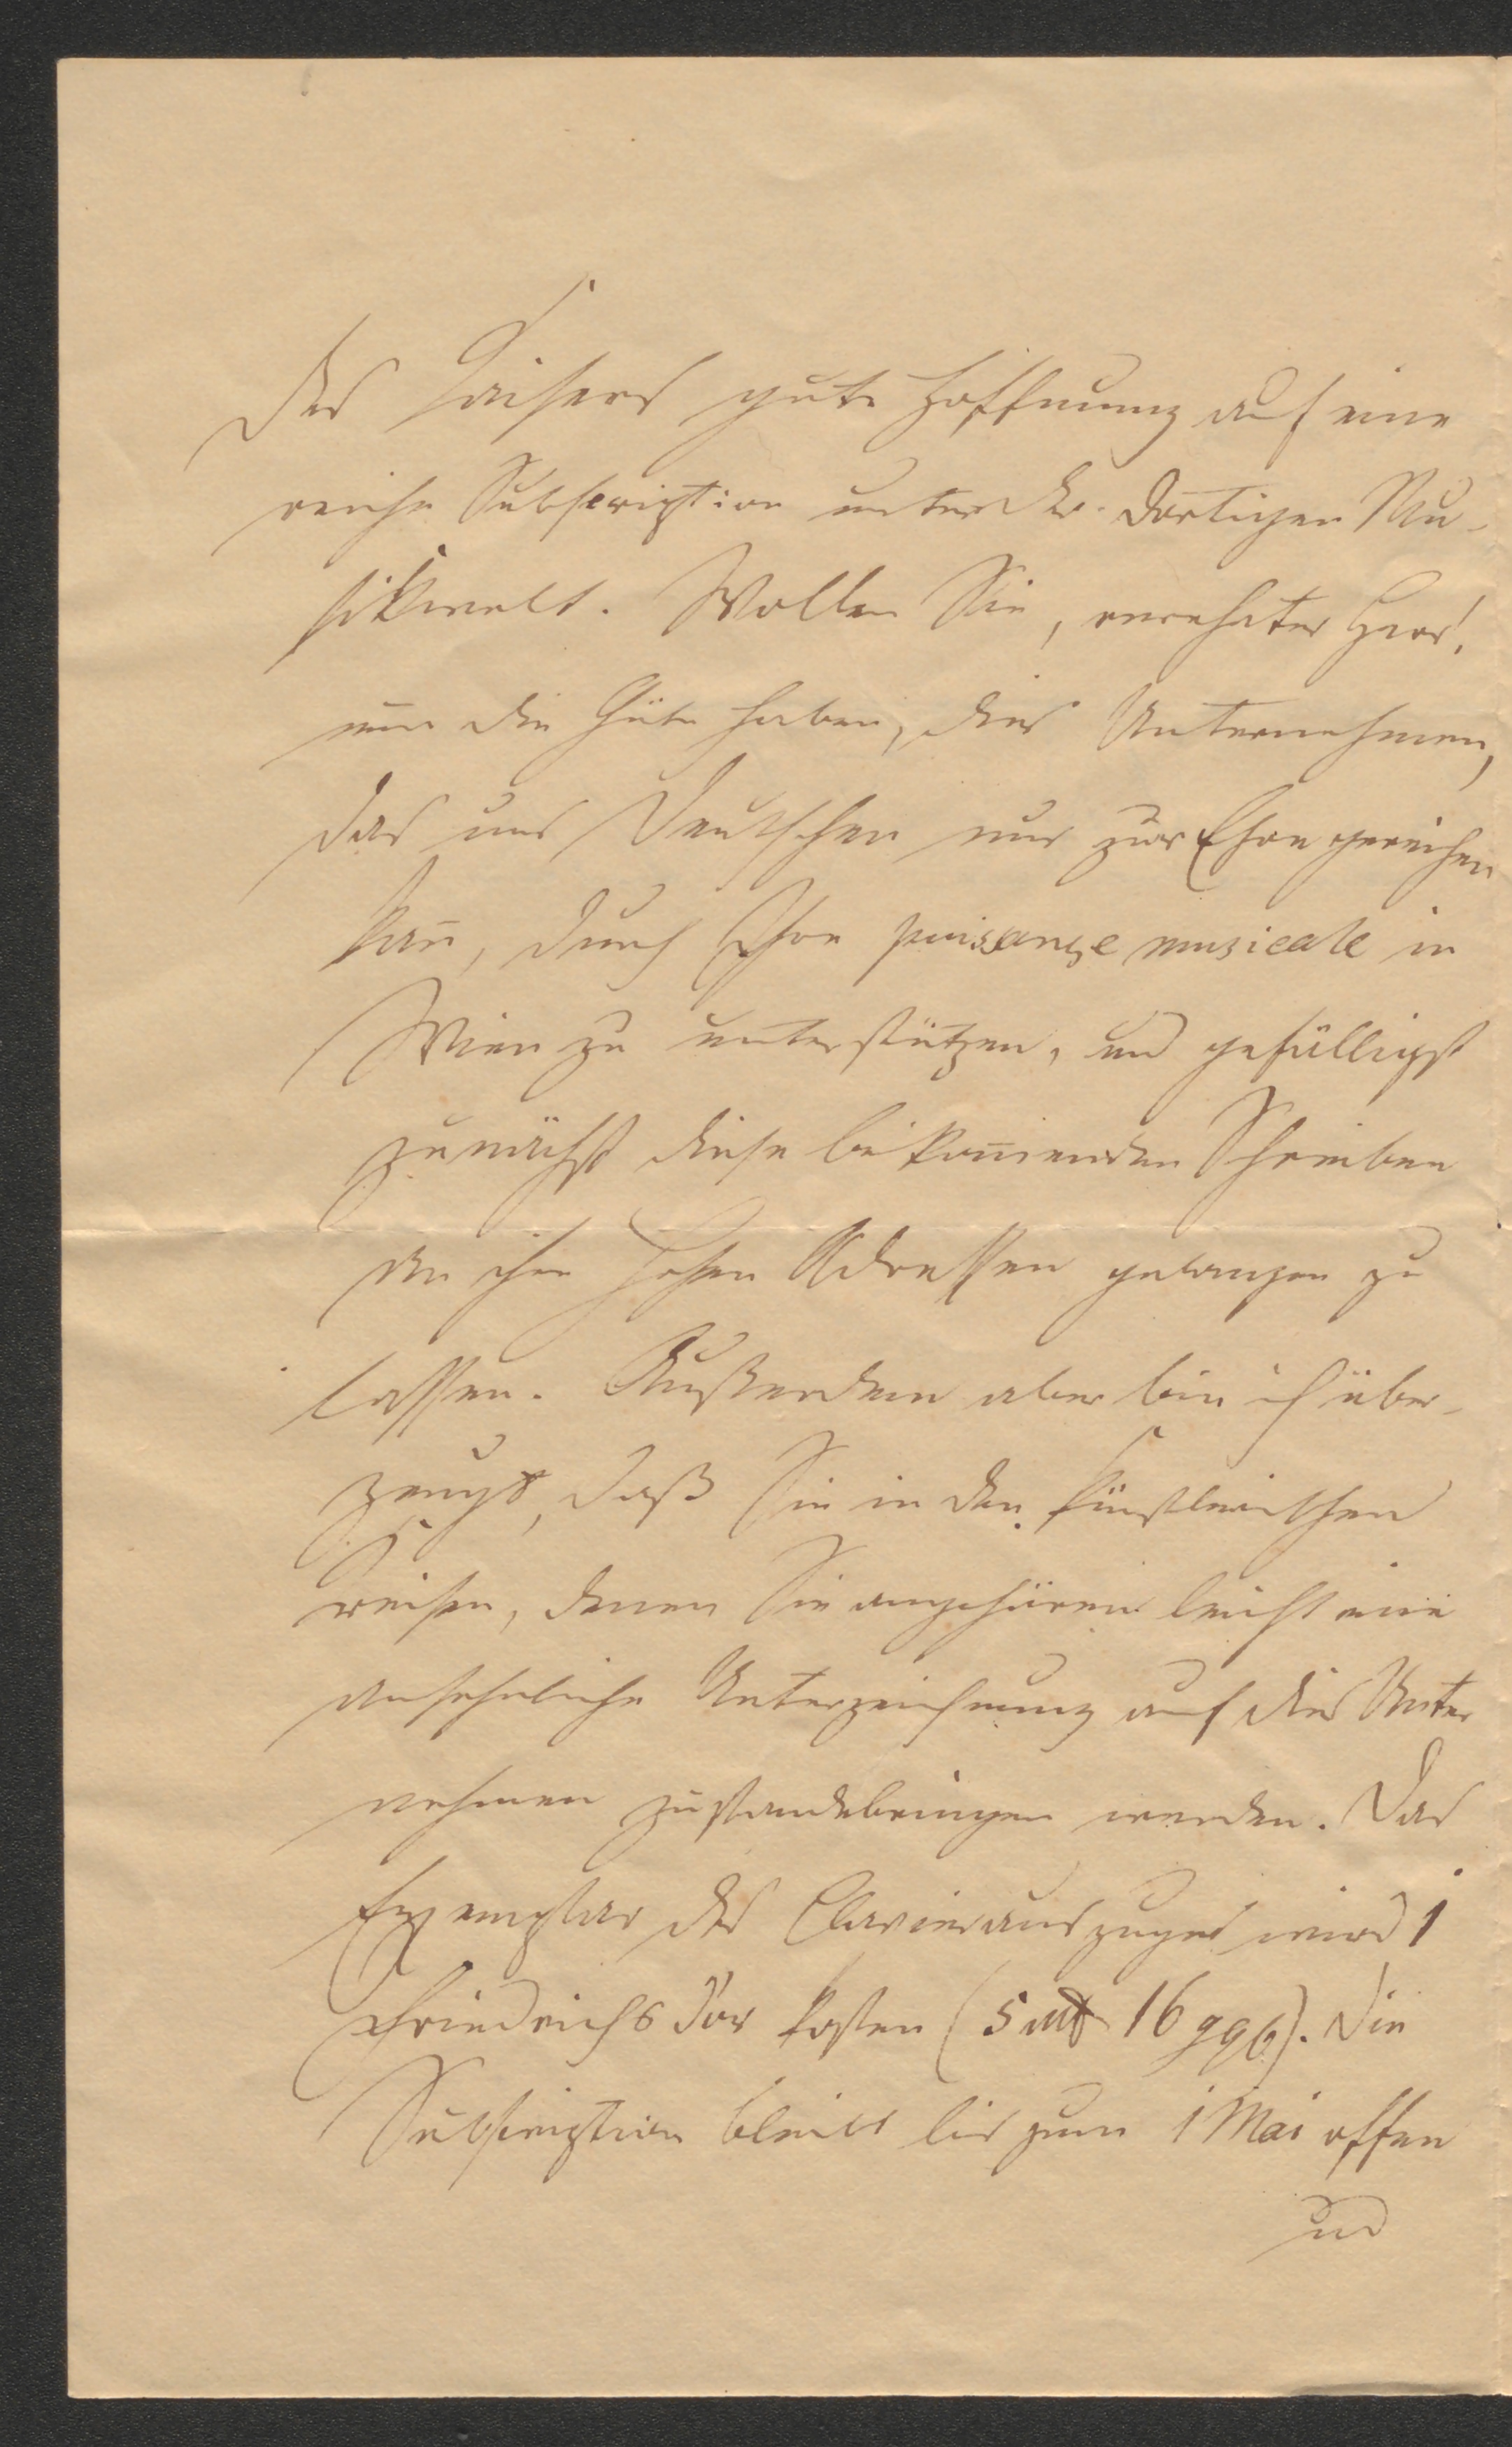 des Kaisers gute Hoffnung auf eine
reiche Subscription unter der dortigen Mu-
sikwelt. Wollen Sie, verehrter Herr!
nun die Güte haben, dies Unternehmen,
das uns Deutschen nur zur Ehre gereichen
kan̄, durch Ihre puissance musicale in
Wien zu unterstützen, und gefälligst
zunächst diese beikom̄enden Schreiben
an ihre hohen Adressen gelangen zu
lassen. Außerdem aber bin ich über-
zeugt, daß Sie in den künstlerischen
Kreisen, denen Sie angehören leicht eine
ansehnliche Unterzeichnung auf dies Unter
nehmen zustandebringen werden. Das
Exemplar des Clavierauszuges wird 1
Friedrichs d'or kosten (5 16 ggr). Die
Subscription bleibt bis zum 1 Mai offen
und